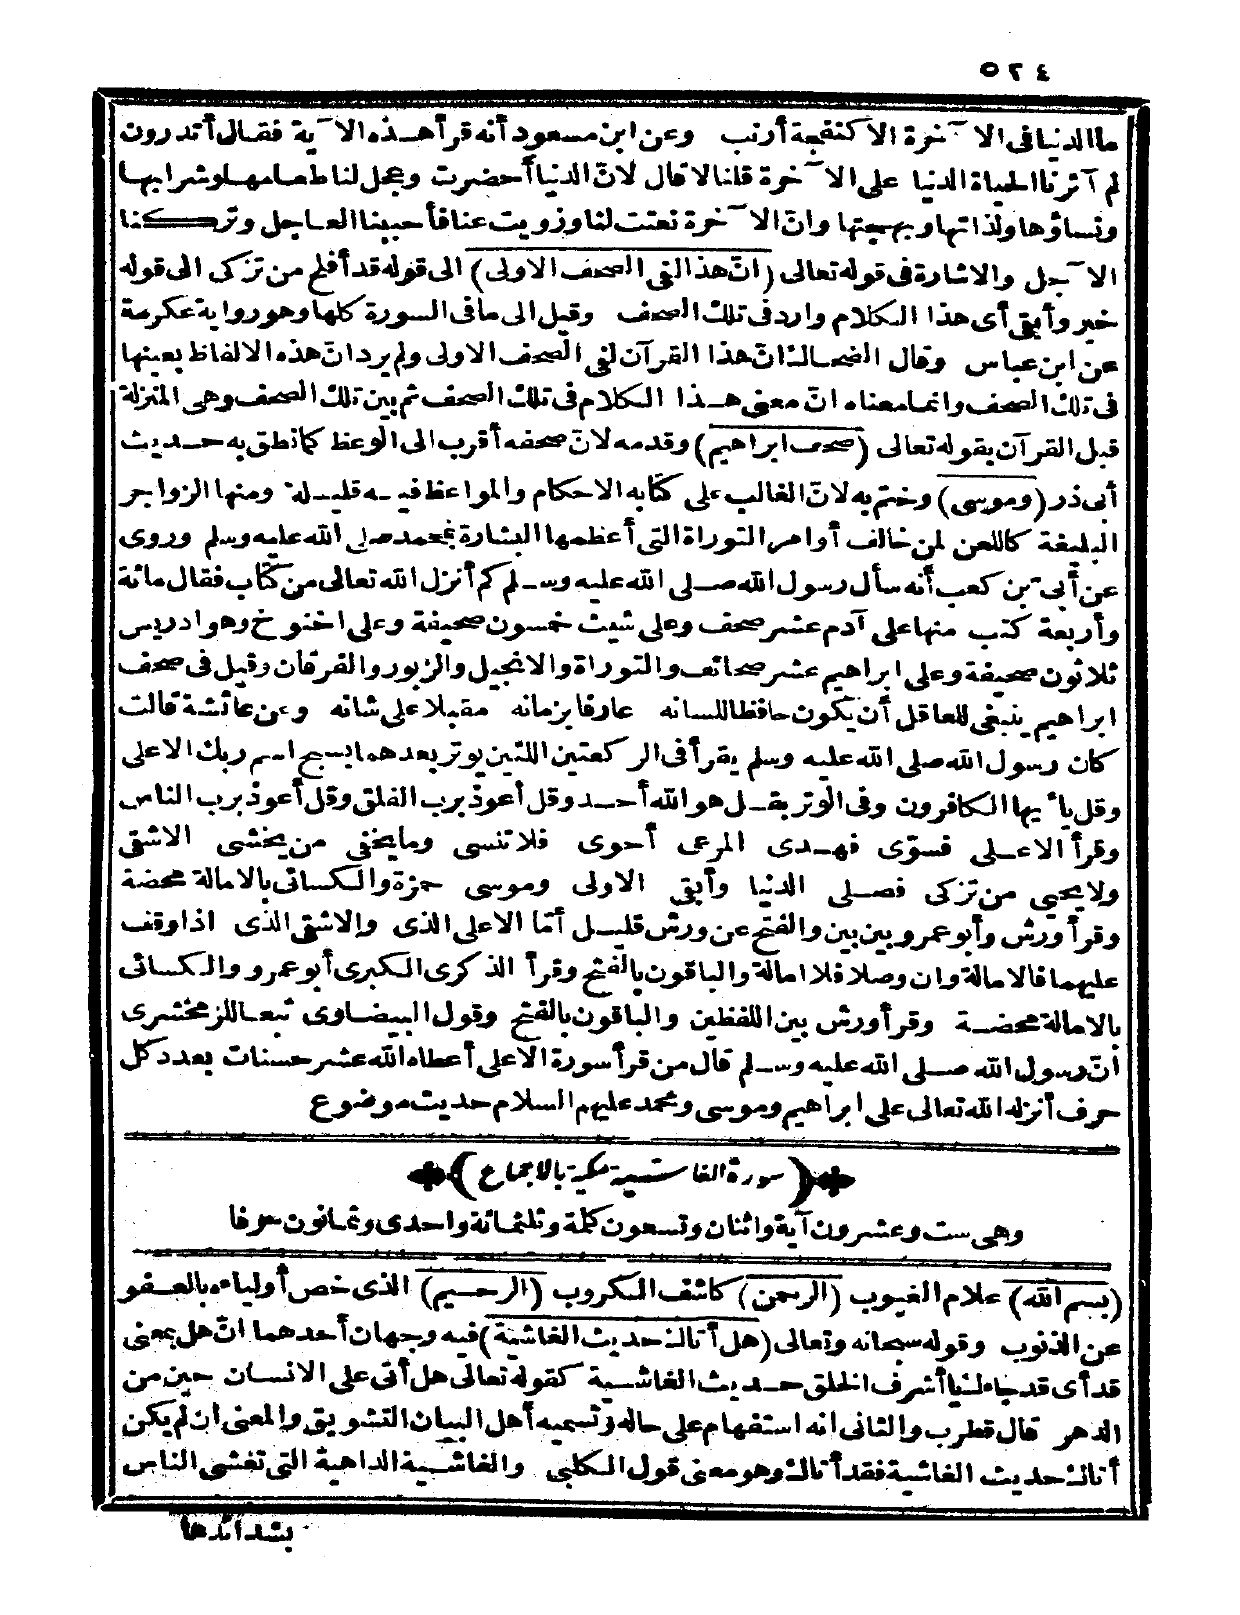 ٥٢٤
ما الدنيا فى الآخرة الا كنفجة أرنب وعن ابن مسعود أنه قرأ هذه الآية فقال أتدرون
لم آثرنا الحياة الدنيا على الآخرة قلنا لا قال لانّ الدنيا أحضرت وعجل لنا طعامها وشرابها
ونساؤها ولذاتها وبهجتها وانّ الآخرة نعتت لنا وزويت عنا فأحببنا العاجل وتركنا
الآجل والاشارة فى قوله تعالى (انّ هذا لفى الصحف الاولى) الى قوله قد أفلح من تزكى الى قوله
خير وأبقى أى هذا الكلام وارد فى تلك الصحف وقيل الى ما فى السورة كلها وهو رواية عكرمة
عن ابن عباس وقال الضحاك انّ هذا القرآن لفى الصحف الاولى ولم يرد انّ هذه الالفاظ بعينها
فى تلك الصحف وانما معناه انّ معنى هذا الكلام فى تلك الصحف ثم بين تلك الصحف وهى المنزلة
قبل القرآن بقوله تعالى (صحف ابراهيم) وقدمه لانّ صحفه أقرب الى الوعظ كما نطق به حديث
أبى ذر (وموسى) وختم به لانّ الغالب على كتابه الاحكام والمواعظ فيه قليلة ومنها الزواجر
البليغة كاللعن لمن خالف أوامر التوراة التى أعظمها البشارة بمحمد صلى الله عليه وسلم وروى
عن أبىّ بن كعب أنه سأل رسول الله صلى الله عليه وسلم كم أنزل الله تعالى من كتاب فقال مائة
وأربعة كتب منها على آدم عشر صحف وعلى شيث خمسون صحيفة وعلى اخنوخ وهو ادريس
ثلاثون صحيفة وعلى ابراهيم عشر صحائف والتوراة والانجيل والزبور والفرقان وقيل فى صحف
ابراهيم ينبغى للعاقل أن يكون حافظا للسانه عارفا بزمانه مقبلا على شانه وعن عائشة قالت
كان رسول الله صلى الله عليه وسلم يقرأ فى الركعتين اللتين يوتر بعدهما بسبح اسم ربك الاعلى
وقل يا أيها الكافرون وفى الوتر بقل هو الله أحد وقل أعوذ برب الفلق وقل أعوذ برب الناس
وقرأ الاعلى فسوّى فهدى المرعى أحوى فلا تنسى وما يخفى من يخشى الاشقى
ولا يحيى من تزكى فصلى الدنيا وأبقى الاولى وموسى حمزة والكسائى بالامالة محضة
وقرأ ورش وأبو عمرو بين بين والفتح عن ورش قليل أمّا الاعلى الذى والاشقى الذى اذا وقف
عليهما فالامالة وان وصلا فلا امالة والباقون بالفتح وقرأ الذكرى الكبرى أبو عمرو والكسائى
بالامالة محضة وقرأ ورش بين اللفظين والباقون بالفتح وقول البيضاوى تبعا للزمخشرى
انّ رسول الله صلى الله عليه وسلم قال من قرأ سورة الاعلى أعطاه الله عشر حسنات بعدد كل
حرف أنزله الله تعالى على ابراهيم وموسى ومحمد عليهم السلام حديث موضوع
(سورة الغاشية مكية بالاجماع)
وهى ست وعشرون آية واثنان وتسعون كلمة وثلثمائة واحدى وثمانون حرفا
(بسم الله) علام الغيوب (الرحمن) كاشف الكروب (الرحيم) الذى خص أولياءه بالعفو
عن الذنوب وقوله سبحانه وتعالى (هل أتاك حديث الغاشية) فيه وجهان أحدهما انّ هل بمعنى
قد أى قد جاءك يا أشرف الخلق حديث الغاشية كقوله تعالى هل أتى على الانسان حين من
الدهر قال قطرب والثانى انه استفهام على حاله وتسميه أهل البيان التشويق والمعنى ان لم يكن
أتاك حديث الغاشية فقد أتاك وهو معنى قول الكلبى والغاشية الداهية التى تغشى الناس
بشدائدها